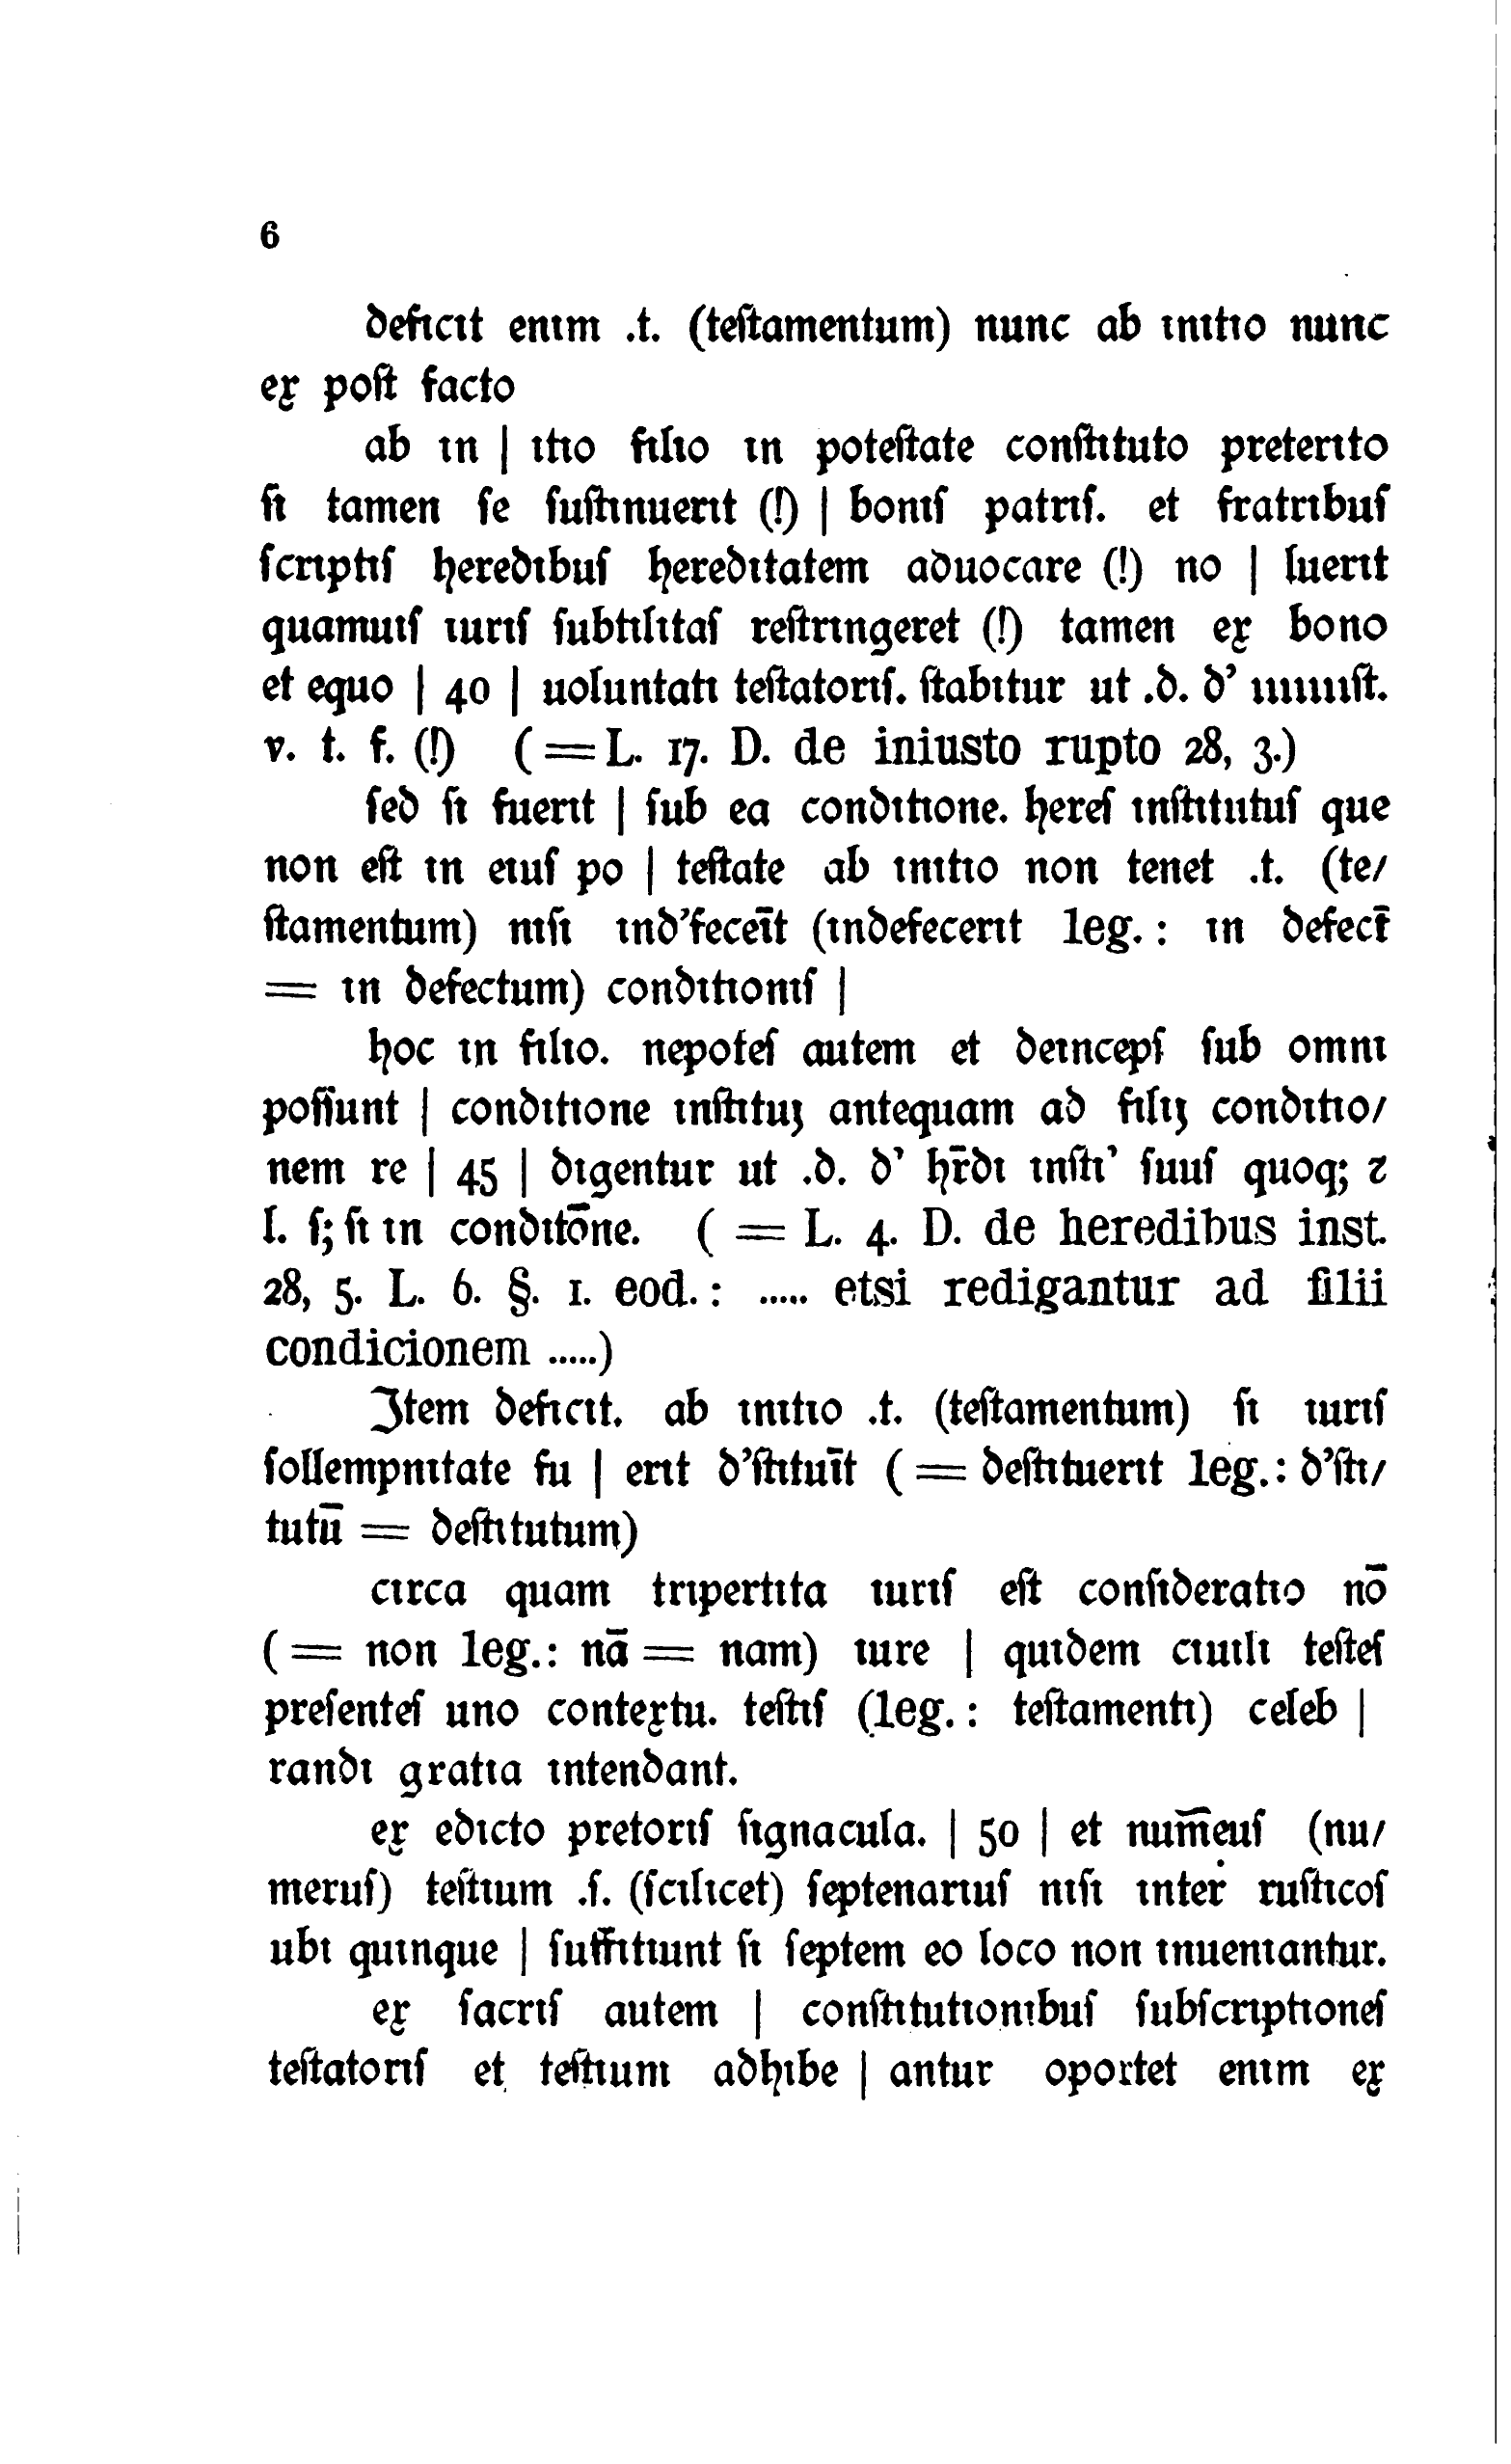 6
deficit enım .t. (teſtamentum) nunc ab ınıtıo nunc
ex poſt facto
ab ın | ıtıo filıo ın poteſtate conſtıtuto preterıto
ſı tamen ſe ſuſtınuerıt (!) | bonıſ patrıſ. et fratrıbuſ
ſcrıptıſ heredıbuſ heredıtatem aduocare (!) no | luerıt
quamuıſ ıurıſ ſubtılıtaſ reſtrıngeret (!) tamen ex bono
et equo | 40 | uoluntatı teſtatorıſ. ſtabıtur ut .d. d’ ıııııııſt.
v. t. f. (!) (= L. 17. D. de iniusto rupto 28, 3.)
ſed ſı fuerıt | ſub ea condıtıone. hereſ ınſtıtutuſ que
non eſt ın eıuſ po | teſtate ab ınıtıo non tenet .t. (te/
ſtamentum) nıſı ınd’feceı̄t (ındefecerıt leg.: ın defect̄
= ın defectum) condıtıonıſ |
hoc ın filıo. nepoteſ autem et deıncepſ ſub omnı
poſſunt | condıtıone ınſtıtuȷ antequam ad filıȷ condıtıo/
nem re | 45 | dıgentur ut .d. d’ hr̄dı ınſtı’ ſuuſ quoq; ꝛ
l. ſ; ſı ın condıtōne. ( = L. 4. D. de heredibus inst.
28, 5. L. 6. §. 1. eod.: ..... etsi redigantur ad filii
condicionem .....)
Item deficıt. ab ınıtıo .t. (teſtamentum) ſı ıurıſ
ſollempnıtate fu | erıt d’ſtıtuı̄t (= deſtıtuerıt leg.: d’ſtı/
tutū = deſtıtutum)
cırca quam trıpertıta ıurıſ eſt conſıderatıo nō
(= non leg.: nā = nam) ıure | quıdem cıuılı teſteſ
preſenteſ uno contextu. teſtıſ (leg.: teſtamentı) celeb |
randı gratıa ıntendant.
ex edıcto pretorıſ ſıgnacula. | 50 | et num̄euſ (nu/
meruſ) teſtıum .ſ. (ſcılıcet) ſeptenarıuſ nıſı ınter ruſtıcoſ
ubı quınque | ſuffıtıunt ſı ſeptem eo loco non ınuenıantur.
ex ſacrıſ autem | conſtıtutıonıbuſ ſubſcrıptıoneſ
teſtatorıſ et teſtıum adhıbe | antur oportet enım ex